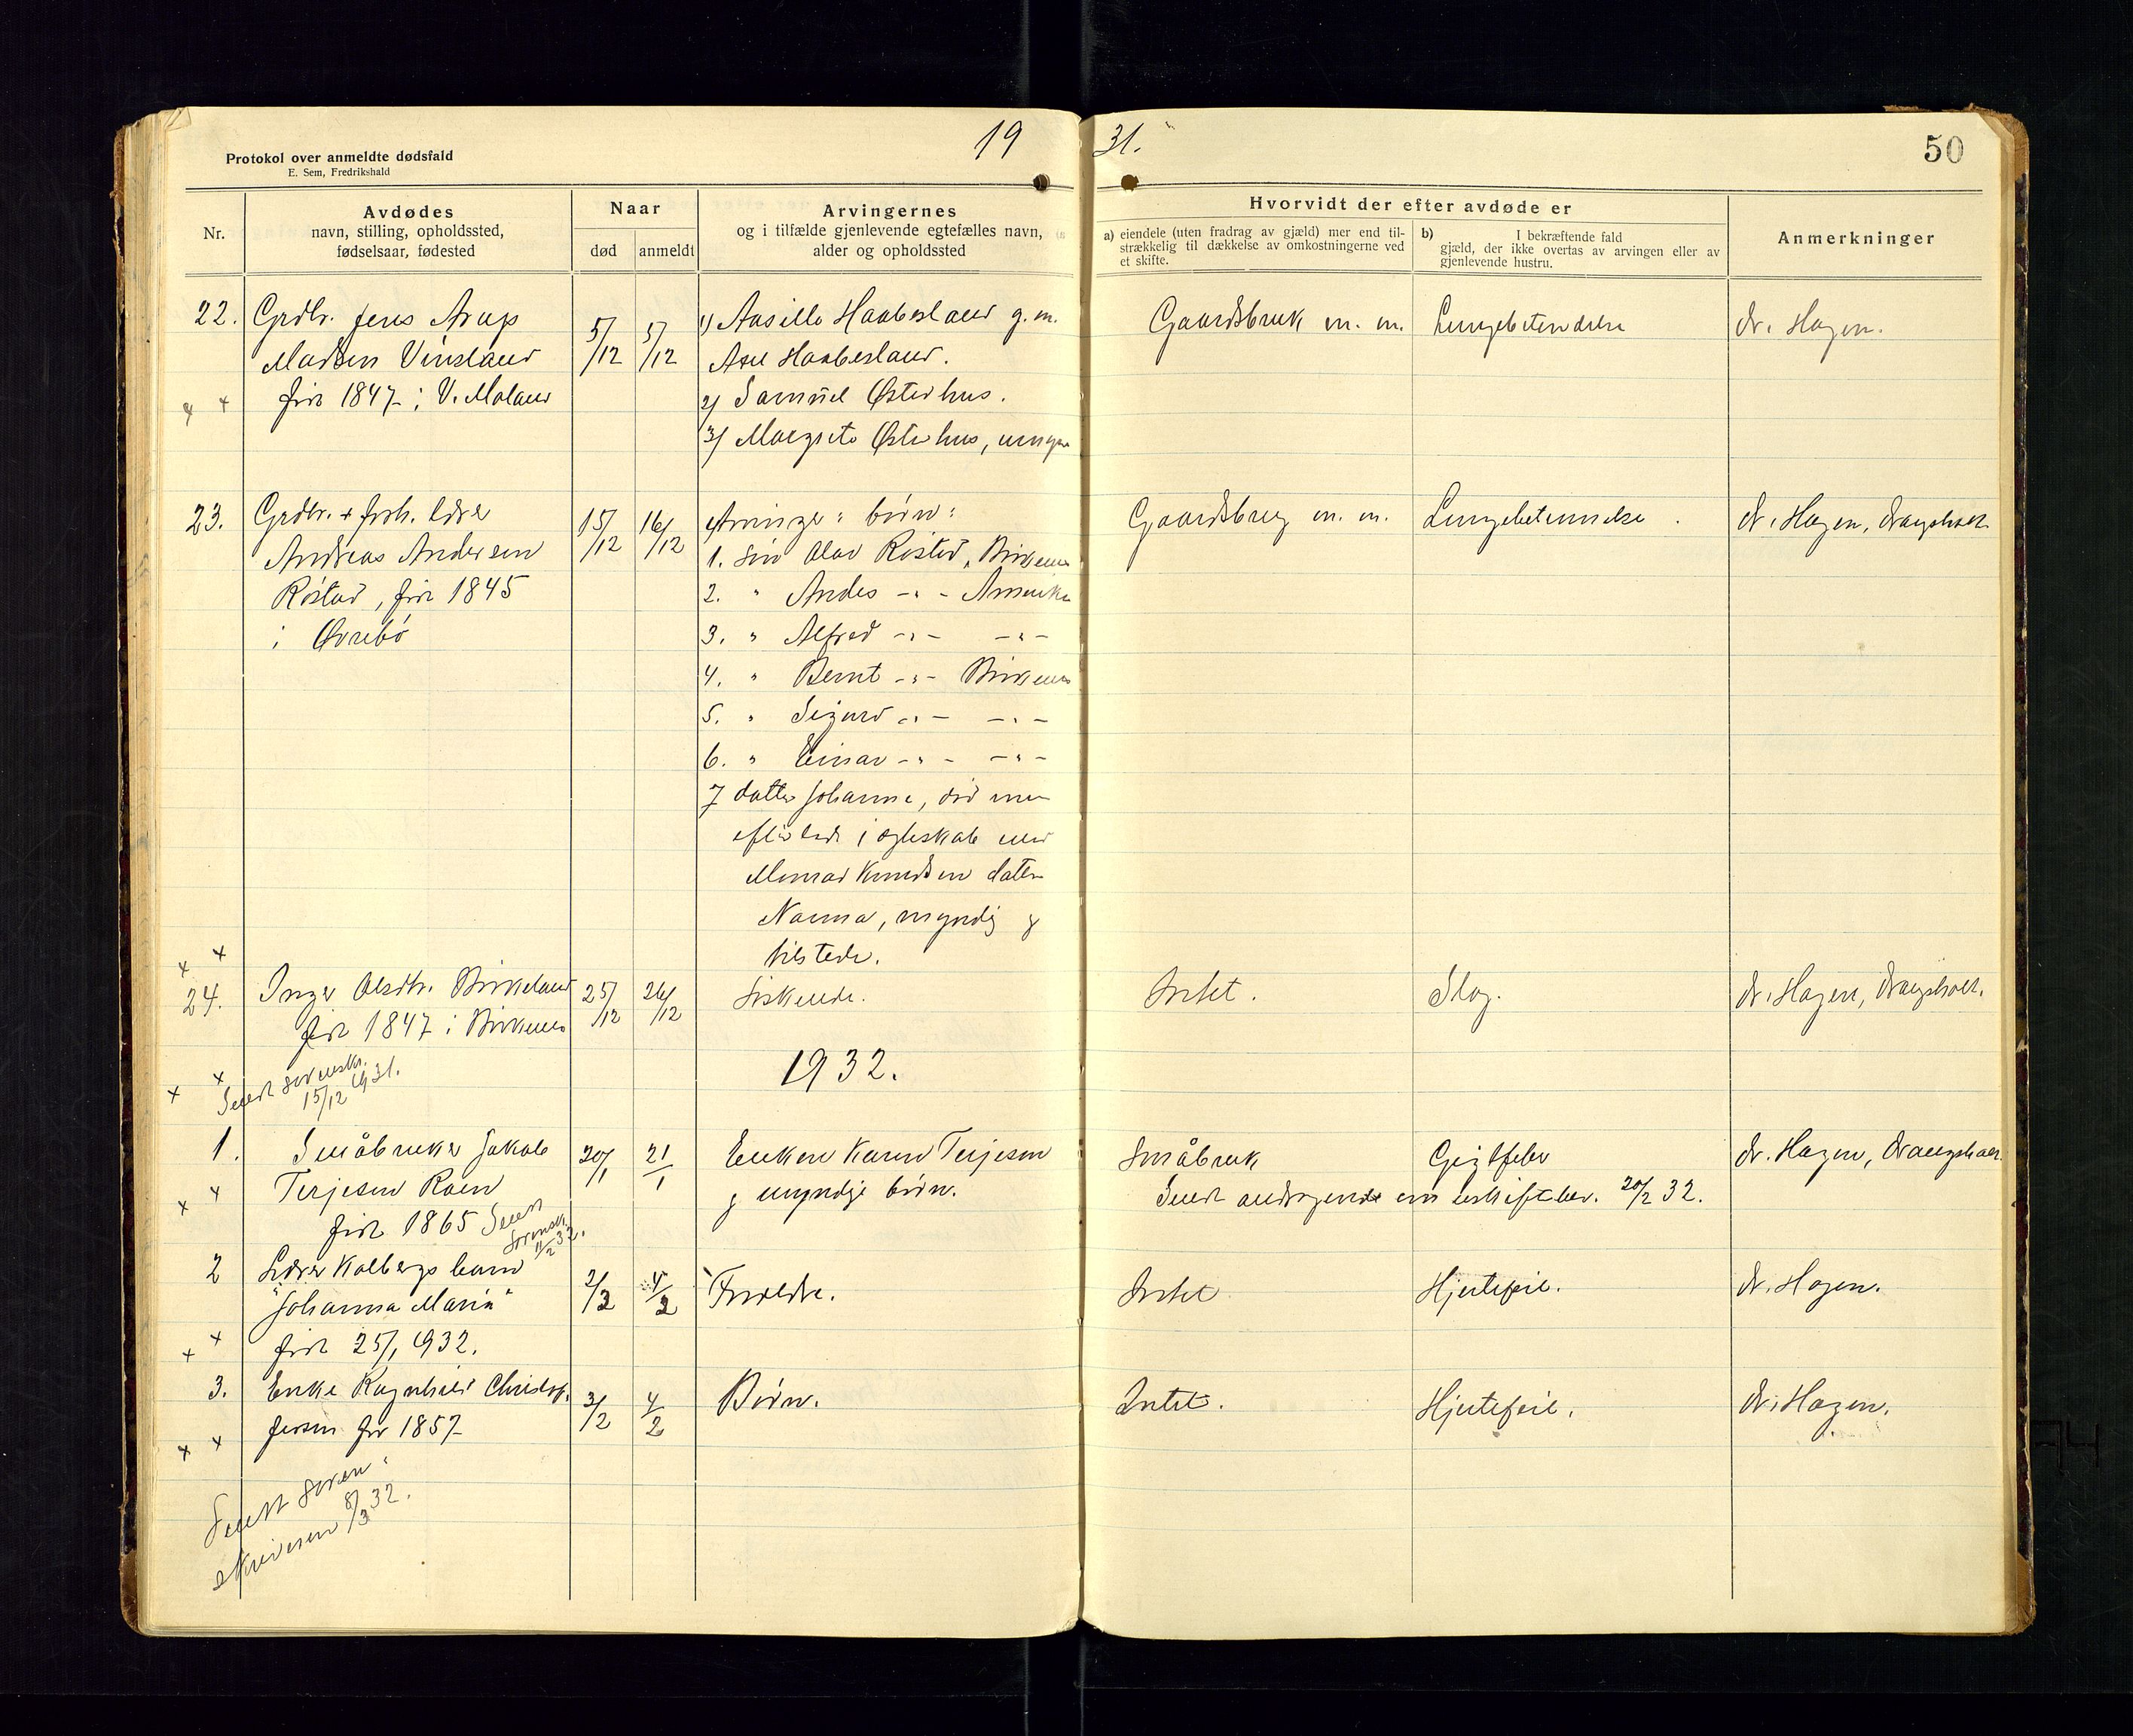 19 31.
50
Protokol over anmeldte dødsfald
E. Sem, Fredrikshald
Nr.
Avdødes
navn, stilling, opholdssted,
fødselsaar, fødested
Naar
død
anmeldt
Arvingernes
og i tilfælde gjenlevende egtefælles navn,
alder og opholdssted
Hvorvidt der efter avdøde er
a) eiendele (uten fradrag av gjæld) mer end til-
strækkelig til dækkelse av omkostningerne ved
et skifte.
b) I bekræftende fald
gjæld, der ikke overtas av arvingen eller av
gjenlevende hustru.
Anmerkninger
22. Grdbr. Jens Arup
Madsen Vinsland
født 1847 i V. Moland
5/12
5/12
1/ Aasille Haabesland g. m.
Axel Haabesland.
2/ Samuel Østerhus.
3/ Margrete Østerhus,
Gaardsbruk m. m.
Lungebetendelse
dr. Hagen.
23. Grdbr. + forh. lærer
Andreas Andersen
Røstad, født 1845
i Øvrebø
15/12
16/12
Arvinger: børn:
1. søn Olav Røstad, Birkenes
2. " Anders -"- Amerika
3. " Alfred -"- -"-
4. " Bernt -"- Birkenes
5. " Sigurd -"- -"-
6. " Einar -"- -"-
7 datter Johanna, død men
efterlod i egteskab med
Knudsen datter
Nanna, myndig og
tilstede.
Gaardsbrug m. m.
Lungebetennelse.
dr. Hagen, Drangsholt
24. Inger Olsdtr. Birkeland
født 1847 i Birkenes
25/12
26/12
Søskende.
Intet.
Slag.
dr. Hagen, Drangsholt.
Sendt sorenskr.
15/12 1931.
1932.
1. Småbruker Jakob
Terjesen Roen
født 1865 Sendt
sorenskr.
11/2 32.
20/1
21/1
Enken Karen Terjesen
og myndige børn.
Småbruk
Giktfeber
dr. Hagen, Drangsholt
Sendt andragende om uskiftebev. 20/2 32.
2 Lærer Kolbergs barn
"Johanna Marie"
født 25/1 1932.
2/2
4/2
Foreldre.
Intet
Hjertefeil.
dr. Hagen.
3. Enke Ragnhild Christof-
fersen født 1857
3/2
4/2
Børn.
Intet.
Hjertefeil.
dr. Hagen.
Sendt soren-
skriveren 8/3 32.